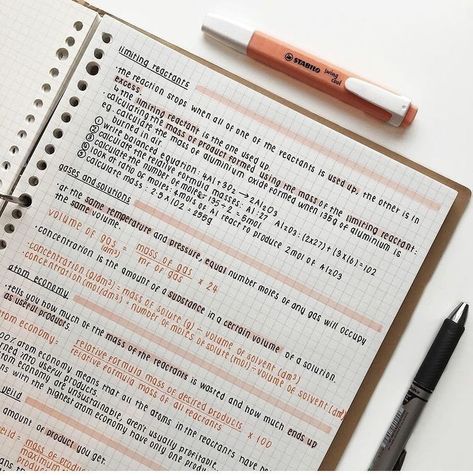 limiting reactants
· the reaction stops when all of one of the reactants is used up, the other is in
excess.
↳ the limiting reactant is the one used up.
· calculating the mass of product formed using the mass of the limiting reactant:
eg calculate the mass of aluminium oxide formed when 135g of aluminium is
burned in air.
① write balanced equation: 4Al + 3O2 → 2Al2O3
② calculate the relative formula masses: Al: 27 Al2O3: (2x27) + (3x16) = 102
③ calculate the number of moles: 135÷27 = 5mol
④ look at ratio of moles: 4mol of Al react to produce 2mol of Al2O3
⑤ calculate mass: 2.5x102 = 255g
gases and solutions
· at the same temperature and pressure, equal number moles of any gas will occupy
the same volume.
volume of gas (dm3) = mass of gas / mr of gas x 24
· concentration is the amount of a substance in a certain volume of a solution.
· concentration (g/dm3) = mass of solute (g) ÷ volume of solvent (dm3)
· concentration (mol/dm3) = number of moles of solute (mol) ÷ volume of solvent (dm3)
atom economy
· tells you how much of the mass of the reactants is wasted and how much ends up
as useful products.
atom economy: relative formula mass of desired products / relative formula mass of all reactants x 100
100% atom economy means that all the atoms in the reactants have
turned into products.
atom economy are unsustainable, aren't usually profitable.
with the highest atom economy have only one product
yeild
amount of product you get.
yeild = mass of
maximum
STABILO
swing
cool